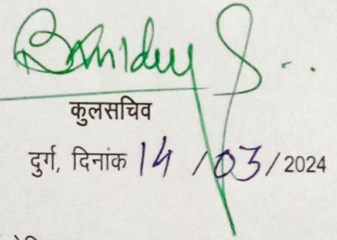 कुलसचिव
दुर्ग, दिनांक 14 /03/2024